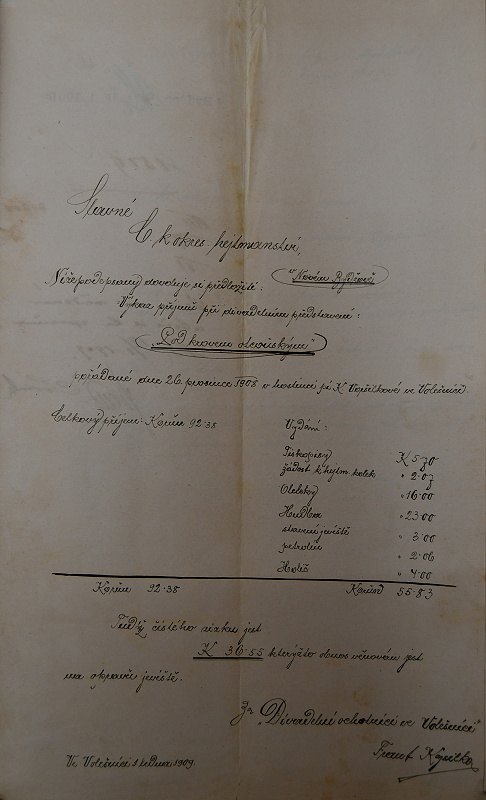 Slavné
C. k. okres. hejtmanství,
v Novém Bydžově
Níže podepsaný dovoluje si předložiti:
Výkaz příjmů při divadelním představení:
"Pod krovem otcovským"
pořádané dne 26. prosince 1908 v hostinci pí K. ve Volešnici.
Celkový příjem: Korun 92·38
Vydání:
Tiskopisy K 5·70
žádost k hejtm. kolek " 2·07
" 16·00
Hudba " 23·00
stavení jeviště " 3·00
petrolin " 2·06
Holič " 4·00
Korun 92·38 Korun 55·83
Tudíž čistého zisku jest
K 36·55 kterýžto obnos věnován jest
na opravu jeviště.
Za "Divadelní ochotníci ve Volešnici"
Ve Volešnici 1 ledna 1909.